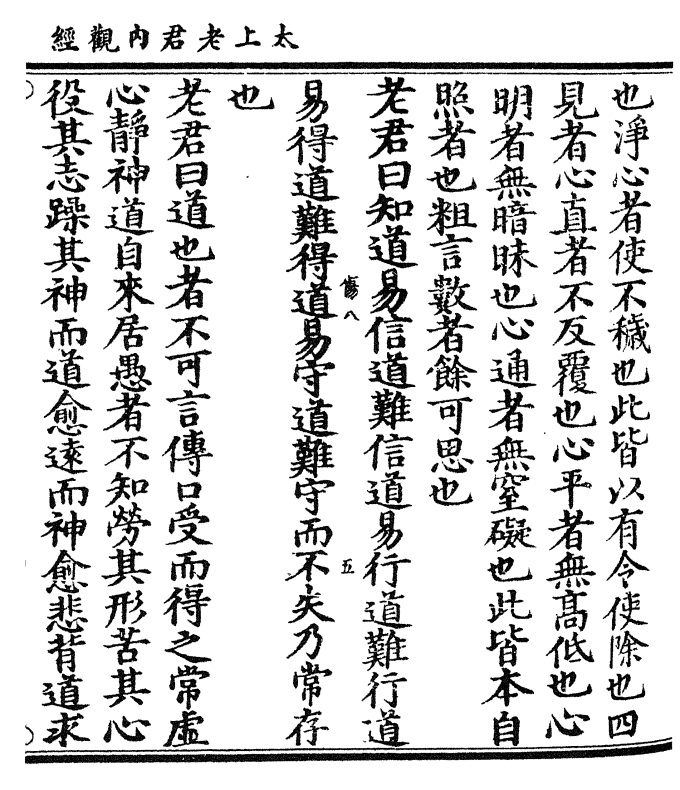 太上老君內觀經
也淨心者使不穢也此皆以有令使除也四
見者心直者不反覆也心平者無高低也心
明者無暗昧也心通者無窒礙也此皆本自
照者也粗言數者餘可思也
老君曰知道易信道難信道易行道難行道
傷八
五
易得道難得道易守道難守而不失乃常存
也
老君曰道也者不可言傳口受而得之常虛
心靜神道自來居愚者不知勞其形苦其心
役其志躁其神而道愈遠而神愈悲背道求